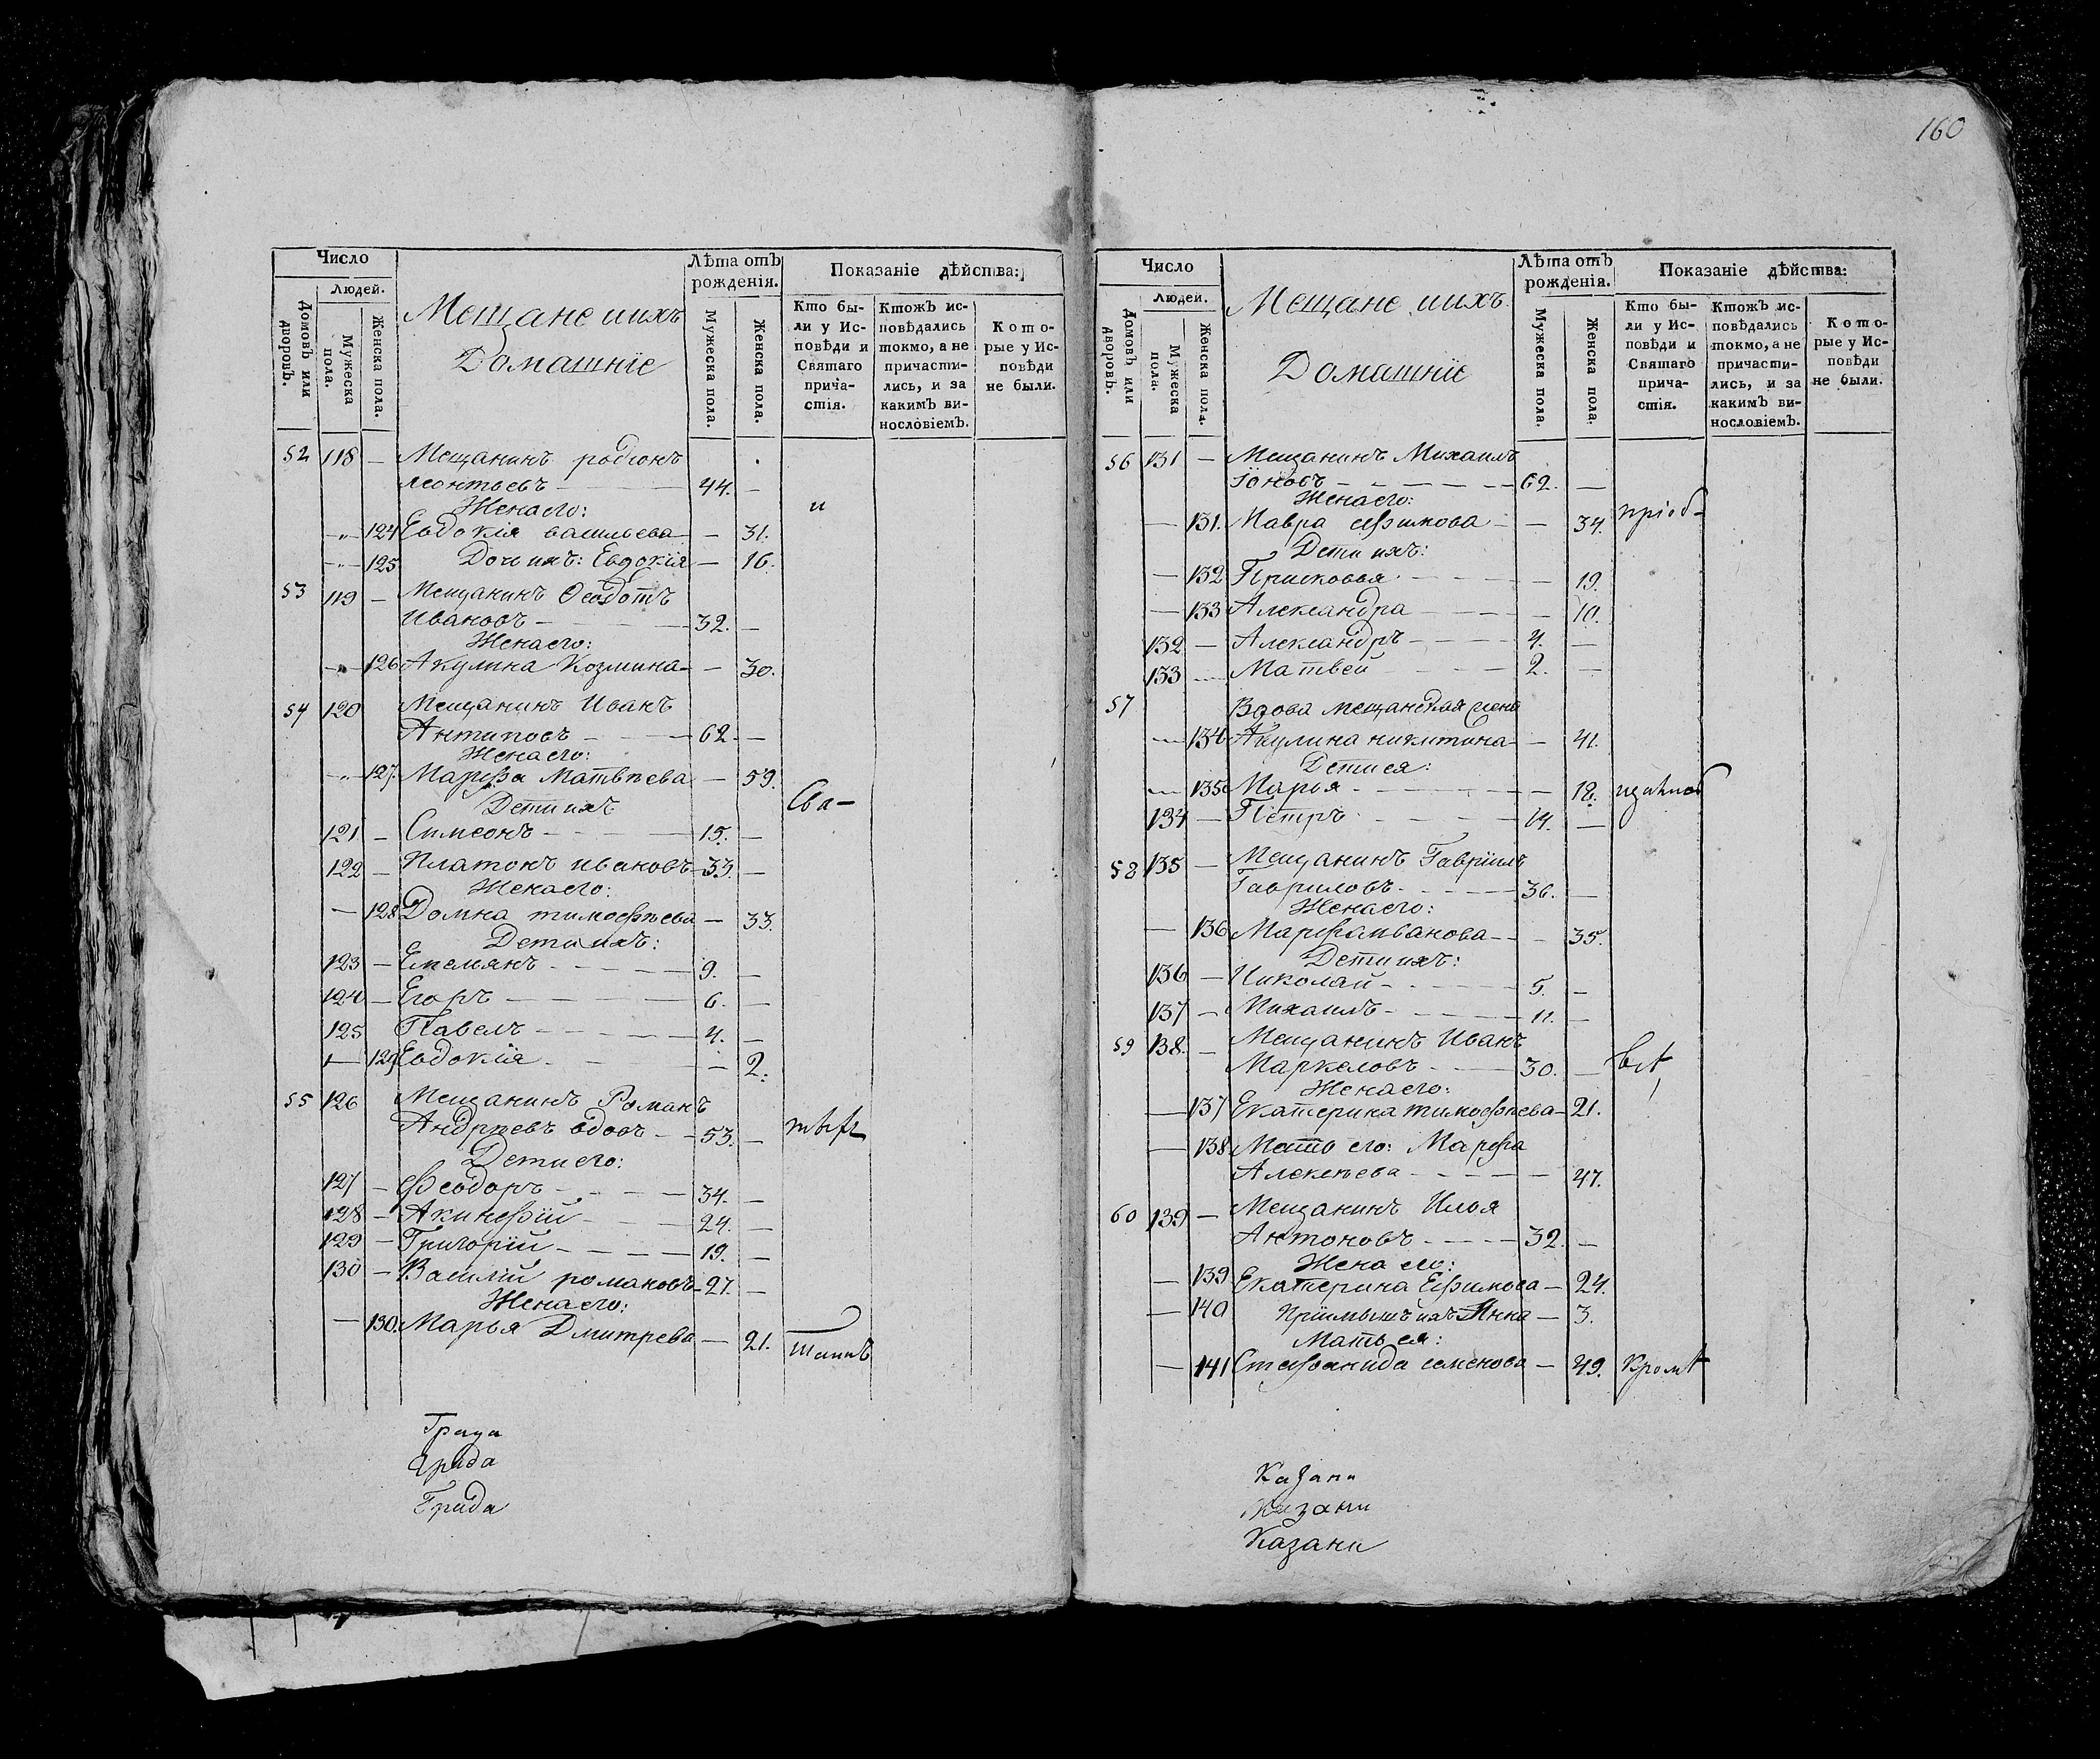 160
Число
Людей.
Домовъ или дворовъ.
Мужеска пола.
Женска пола.
Мещане иихъ
Домашніе
Лѣта отъ рожденія.
Мужеска пола.
Женска пола.
Показаніе дѣйства:
Кто были у Исповѣди и Святаго причастія.
Ктожъ исповѣдались токмо, а не причастились, и за какимъ винословіемъ.
Которые у Исповѣди не были.
52 118 — Мещанинъ родіонъ
леонтьевъ — 44. —
Женаего: и
— 124 Евдокія васильева — 31.
— 125 Дочь ихъ: Евдокія — 16.
53 119 — Мещанинъ Ѳеодотъ
Ивановъ — 32. —
Женаего:
— 126 Акулина Козмина — 30.
54 120 Мещанинъ Иванъ
Антиповъ — 62. —
Женаего:
— 127. Марфа Матвѣева — 59.
Дети ихъ Свя—
121 — Симеонъ — 15. —
122 — Платонъ ивановъ — 33. —
Женаего:
— 128 Домна тимофѣева — 33.
Дети ихъ:
123 — Емельянъ — 9. —
124 — Егоръ — 6. —
125 Павелъ — 4. —
— 129 Евдокія — 2.
55 126 Мещанинъ Романъ
Андрѣевъ вдовъ — 53. —
Дети его:
127 — Феодоръ — 34. —
128 — Акинфій — 24. —
129 — Григорій — 19. —
130 — Василій романовъ — 27. —
Женаего:
— 130. Марья Дмитрева — 21.
Града
Града
Града
Число
Людей.
Домовъ или дворовъ.
Мужеска пола.
Женска пола.
Мещане иихъ
Домашніе
Лѣта отъ рожденія.
Мужеска пола.
Женска пола.
Показаніе дѣйства:
Кто были у Исповѣди и Святаго причастія.
Ктожъ исповѣдались токмо, а не причастились, и за какимъ винословіемъ.
Которые у Исповѣди не были.
56 131 — Мещанинъ Михаилъ
Іоновъ — 62. —
Женаего:
— 131. Мавра ефимова — 34. пріоб—
Дети ихъ:
— 132 Прасковья — 19.
— 133 Александра — 10.
132 — Александръ — 4. —
133 — Матвей — 2. —
57 Вдова мещанская жена
— 134 Акулина никитина — 41.
Дети ея:
— 135 Марья — 18.
134 — Петръ — 14. —
58 135 — Мещанинъ Гавріилъ
Гавриловъ — 36. —
Женаего:
— 136 Марфа иванова — 35.
Дети ихъ:
136 — Николай — 5. —
137 — Михаилъ — 11. —
59 138. — Мещанинъ Иванъ
Маркеловъ — 30. — всѣ
Женаего:
— 137 Екатерина тимофѣева — 21.
— 138 Мать его: Марфа
Алексѣева — 47.
60 139 — Мещанинъ Илья
Антоновъ — 32. —
Жена его:
— 139 Екатерина Ефимова — 24.
— 140 Пріимышъ ихъ Анна — 3.
Мать ея:
— 141 Стефанида семенова — 49. Кромѣ
Казани
Казани
Казани